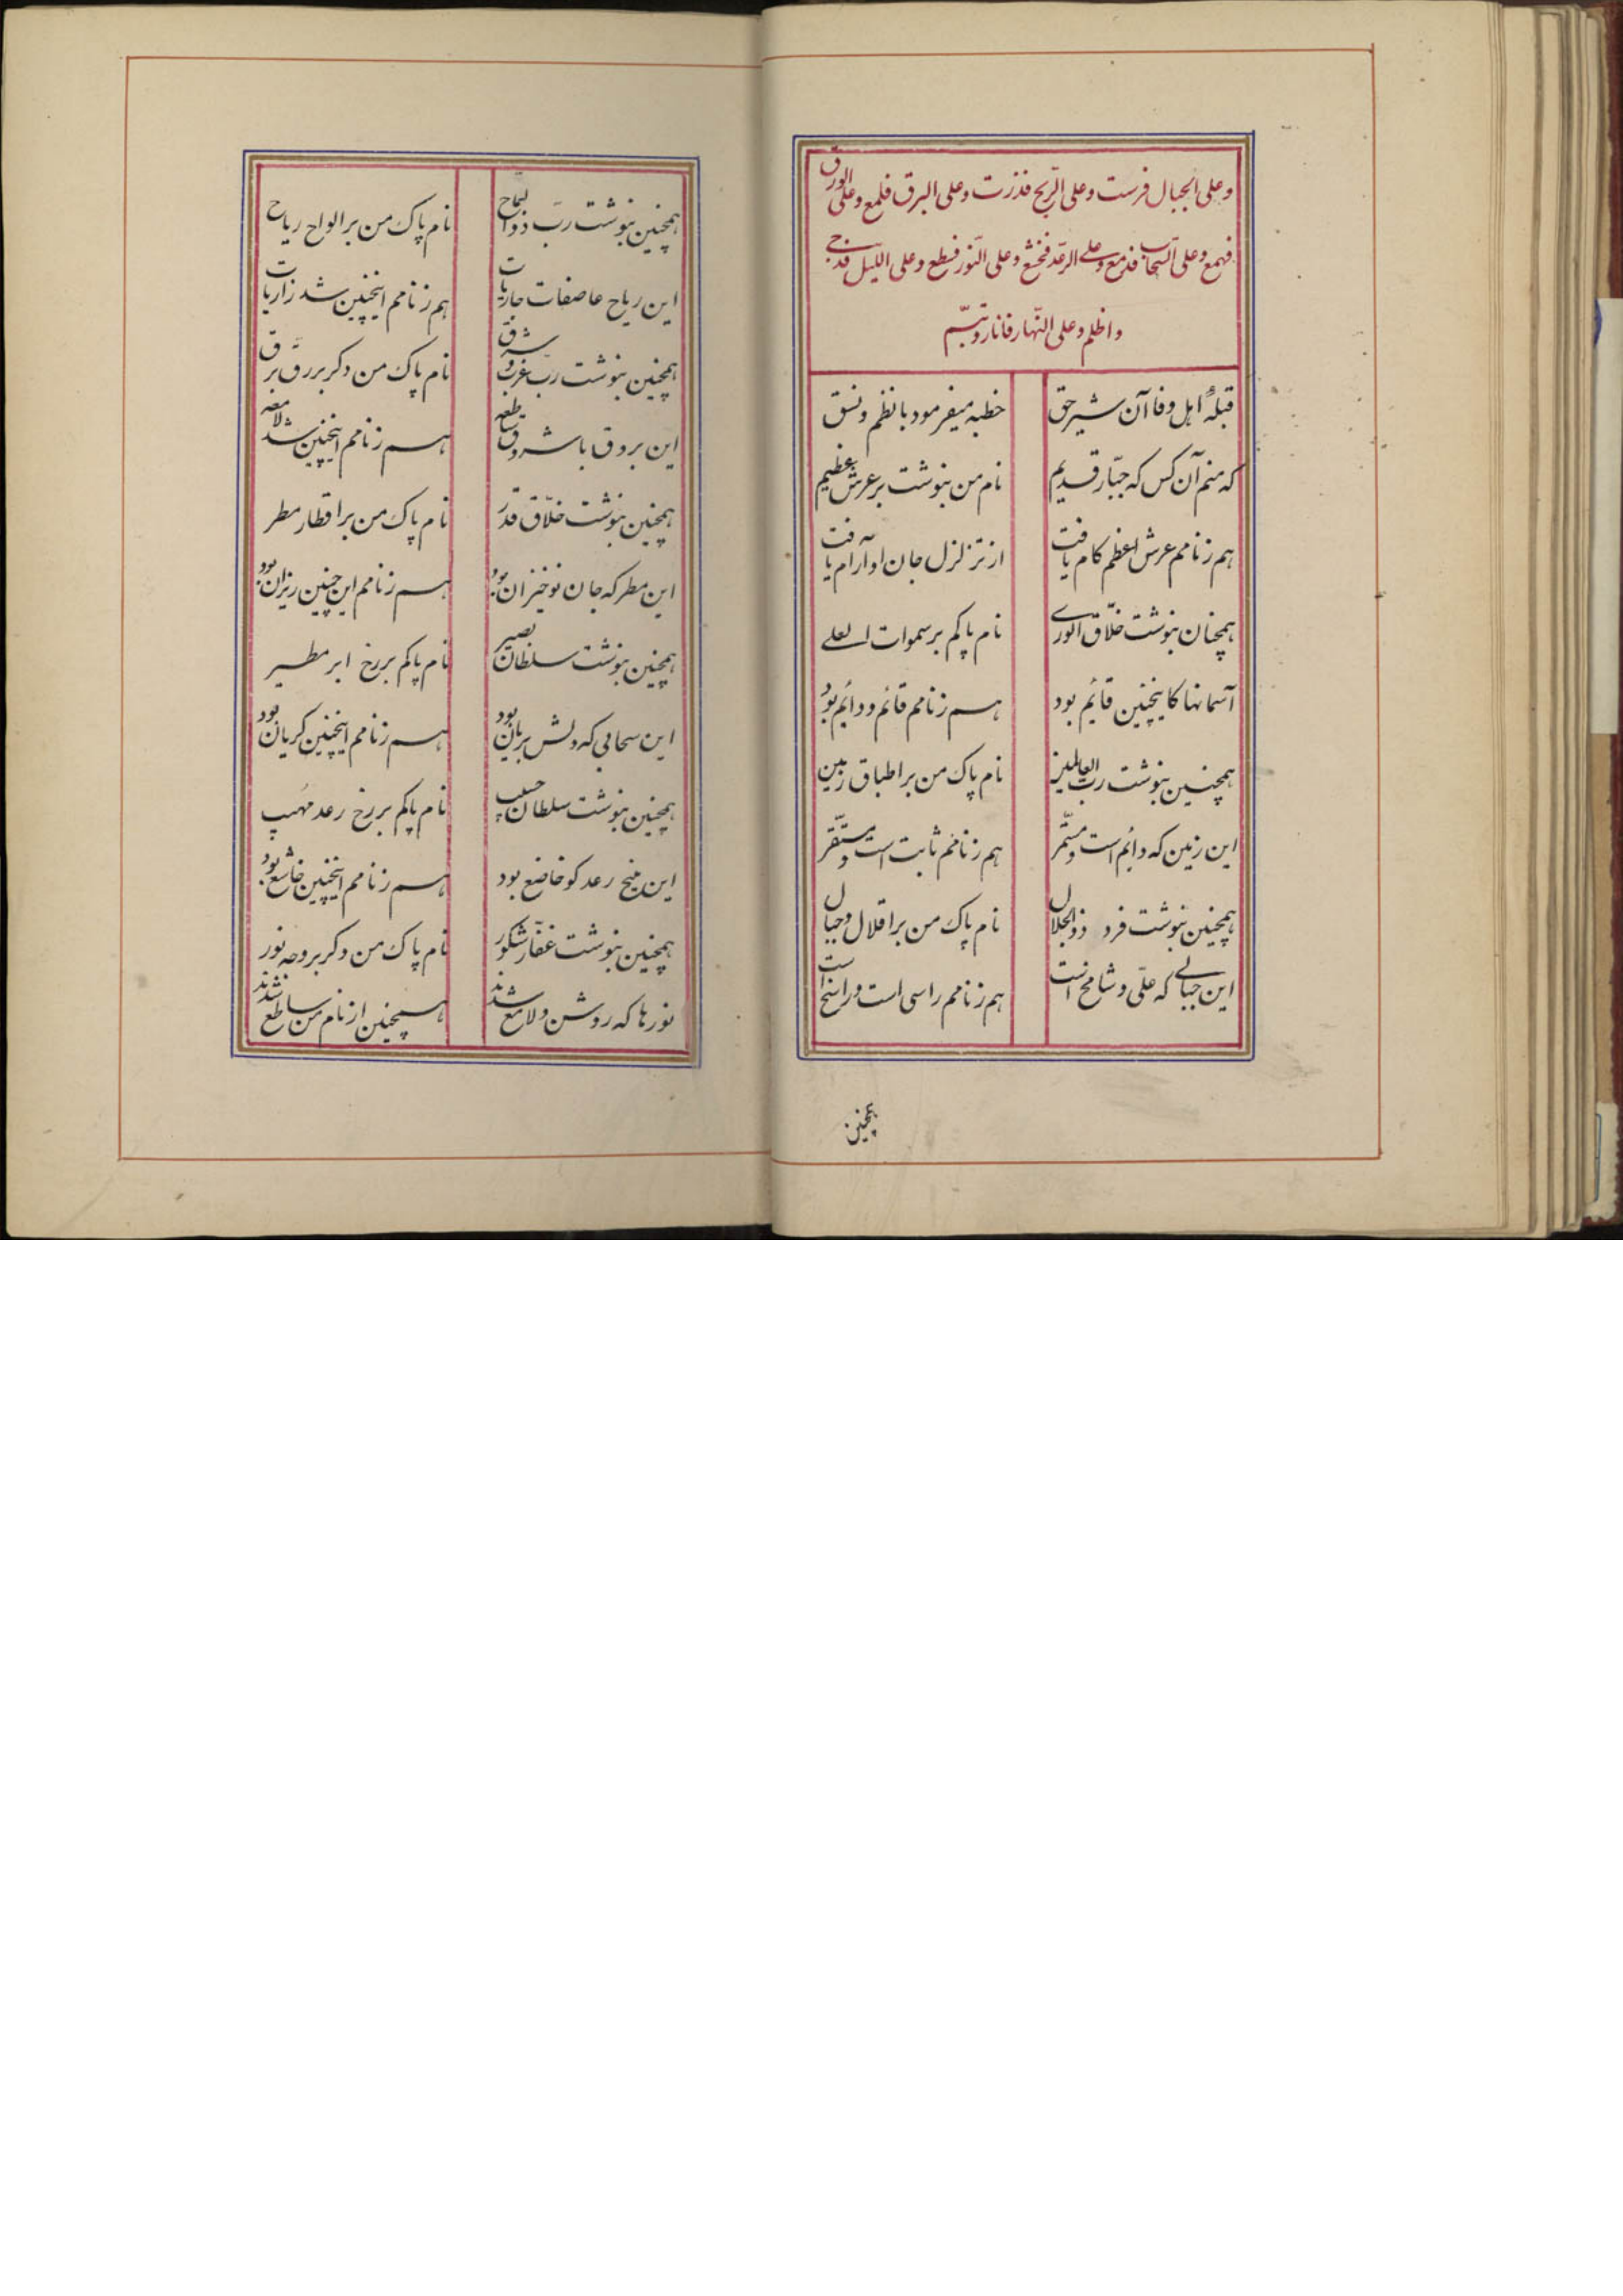 وعلی الجبال فرست وعلی الرّیح فذرت وعلی البرق فلمع وعلی الورق
فهمع وعلی السّحاب فدمع وعلی الرّعد فخشع وعلی النّور فسطع وعلی اللّیل فدجی
واظلم وعلی النّهار فانار وتبسّم
قبلهٔ اهل وفا آن شیر حق خطبه میفرمود با نظم ونسق
که منم آن کس که جبّار قدیم نام من بنوشت بر عرش عظیم
هم زنامم عرش اعظم کام یافت از تزلزل جان او آرام یافت
همچنان بنوشت خلّاق الوری نام پاکم بر سموات العلی
آسمانها کاینچنین قائم بود هم زنامم قائم ودائم بود
همچنین بنوشت ربّ العالمین نام پاک من بر اطباق زمین
این زمین که دائم است ومستمّر هم زنامم ثابت است ومستقّر
همچنین بنوشت فرد ذوالجلال نام پاک من بر اقلال وجبال
این جبالی که علّی وشامخ است هم زنامم راسی است وراسخ است
همچنین
همچنین بنوشت ربّ ذوالسّماح نام پاک من بر الواح ریاح
این ریاح عاصفات جاریات هم زنامم اینچنین شد زاریات
همچنین بنوشت ربّ غرب وشرق نام پاک من دکر بر رقّ برق
این بروق با شروق ساطعه هم زنامم اینچنین شد لامعه
همچنین بنوشت خلّاق قدر نام پاک من بر اقطار مطر
این مطر که جان نوخیزان بود هم زنامم این چنین ریزان بود
همچنین بنوشت سلطان نصیر نام پاکم بر رخ ابر مطیر
این سحابی که دلش بریان بود هم زنامم اینچنین کریان بود
همچنین بنوشت سلطان حسیب نام پاکم بر رخ رعد مهیب
این رعد کو خاضع بود هم زنامم اینچنین خاشع بود
همچنین بنوشت غفّار شکور نام پاک من دکر بر وجه نور
نورها که روشن ولامع شدند همچنین از نام من ساطع شدند